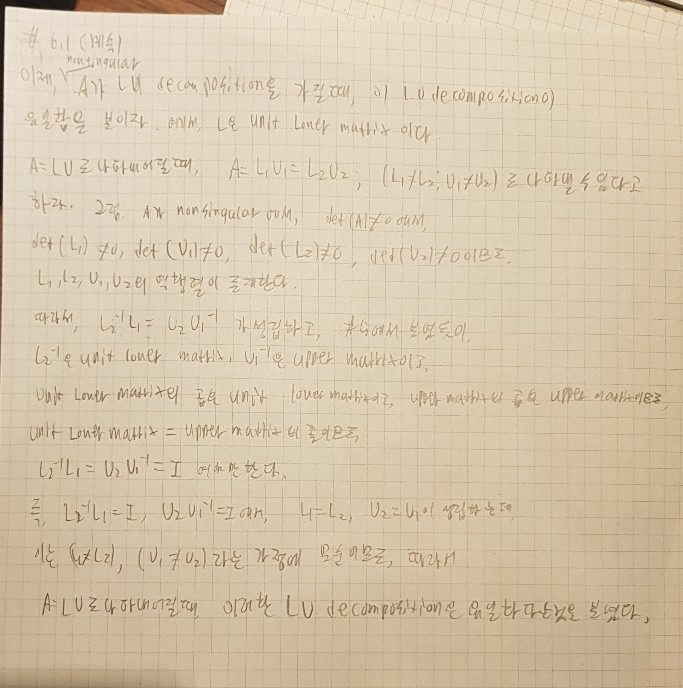 # 6.1 (계속)
nonsingular
이제, A가 LU decomposition을 가질때, 이 LU decomposition이
유일함을 보이자. 여기서, L은 unit Lower matrix 이다
A=LU로 나타내어질때, A=L₁U₁=L₂U₂, (L₁≠L₂, U₁≠U₂)로 나타낼 수 있다고
하자. 그럼, A가 nonsingular det(A)≠0
det(L₁)≠0, det(U₁)≠0, det(L₂)≠0, det(U₂)≠0이므로,
L₁, L₂, U₁, U₂의 역행렬이 존재한다.
따라서, L₂⁻¹L₁=U₂U₁⁻¹가 성립하고, 보였듯이
L₂⁻¹은 unit lower matrix, U₁⁻¹은 upper matrix이고,
unit Lower matrix의 곱은 unit lower matrix이고, upper matrix의 곱은 upper matrix이므로,
unit Lower matrix = upper matrix의 꼴이므로,
L₂⁻¹L₁=U₂U₁⁻¹=I 여야만 한다.
즉, L₂⁻¹L₁=I, U₂U₁⁻¹=I에서, L₁=L₂, U₂=U₁이 성립하는데
이는 (L₁≠L₂), (U₁≠U₂)라는 가정에 모순이므로, 따라서
A=LU로 나타내어질때, 이러한 LU decomposition은 유일하다는것을 보였다.